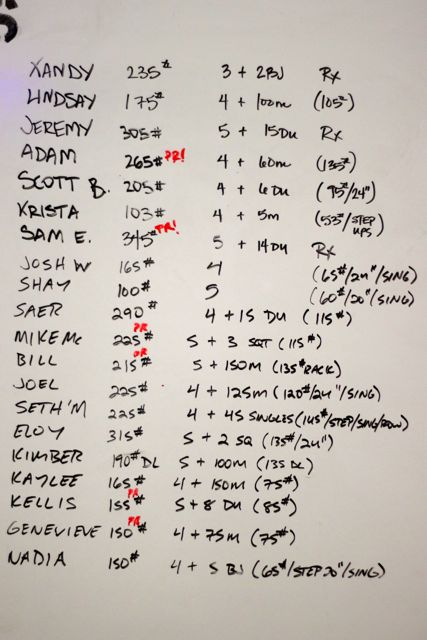 XANDY 235# 3 + 2BJ Rx
LINDSAY 175# 4 + 100m (105#)
JEREMY 305# 5 + 15DU Rx
ADAM 265# PR! 4 + 60m (135#)
SCOTT B. 205# 4 + 6 DU (95#/24")
KRISTA 103# 4 + 5m (53#/STEP UPS)
SAM E. 345# PR! 5 + 14 DU Rx
JOSH W 165# 4 (65#/24"/SING)
SHAY 100# 5 (60#/20"/SING)
SAER 290# 4 + 15 DU (115#)
MIKE Mc 225# PR 5 + 3 SQT (115#)
BILL 215# PR 5 + 150M (135# RACK)
JOEL 225# 4 + 125m (120#/24"/SING)
SETH'M 225# 4 + 45 SINGLES (145#/STEP/SING/ROW)
ELOY 315# 5 + 2 SQ (135#/24")
KIMBER 190# DL 5 + 100m (135 DL)
KAYLEE 165# 4 + 150m (75#)
KELLIS 155# PR 5 + 8 DU (85#)
GENEVIEVE 150# PR 4 + 75M (75#)
NADIA 150# 4 + 5 BJ (65#/STEP 20"/SING)